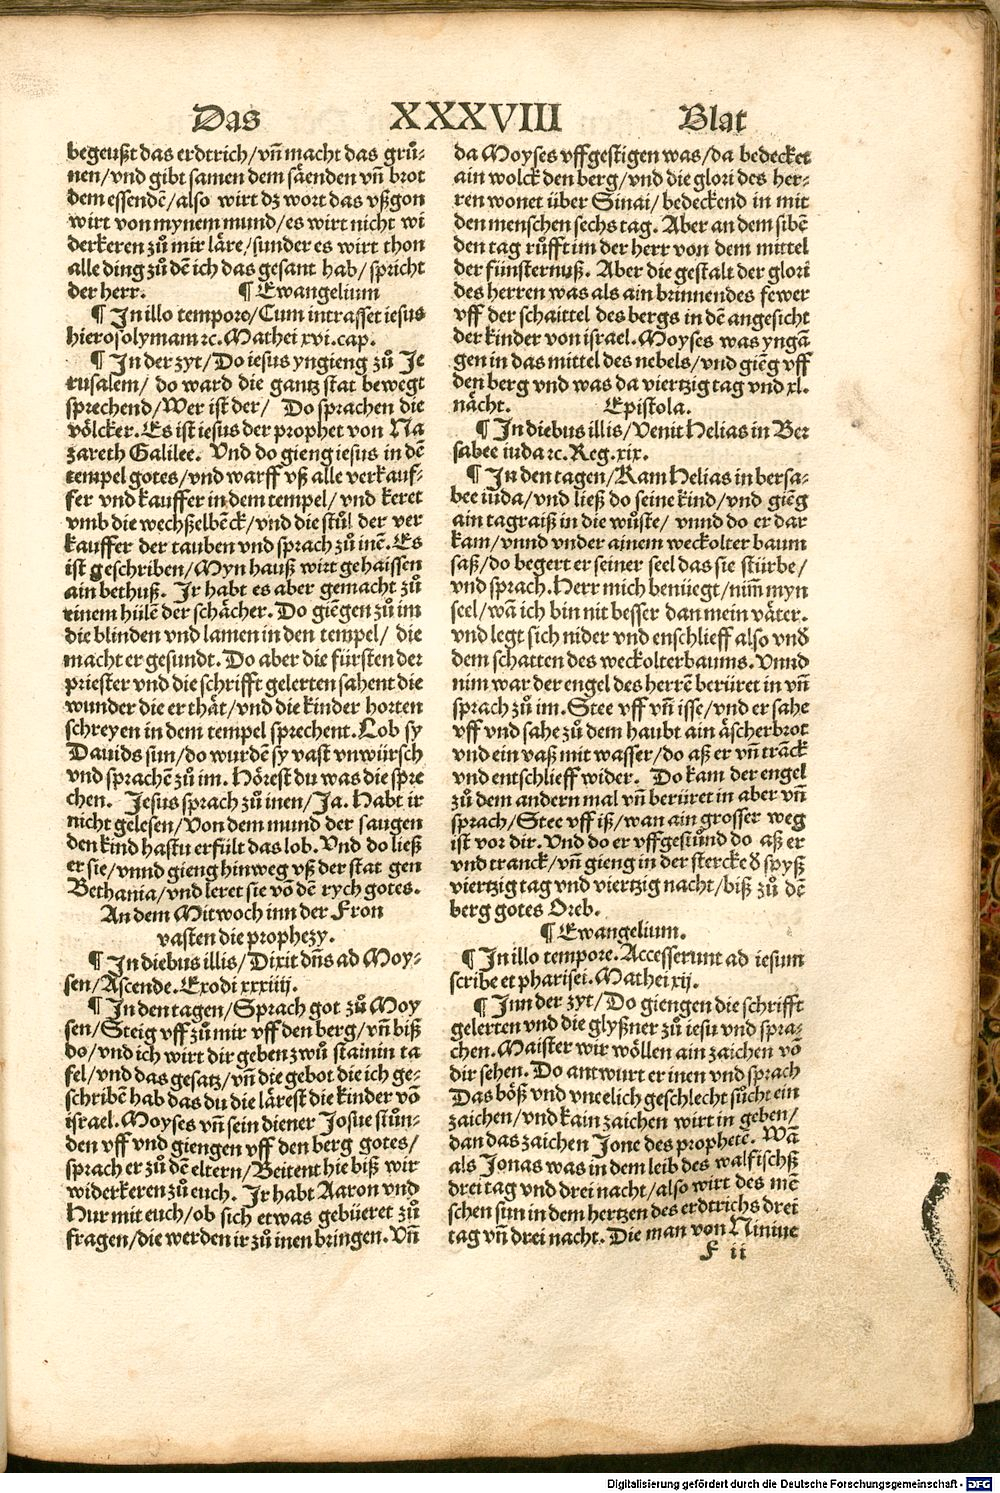 Das XXXVIII Blat
begeußt das erdtrich/vñ macht das grů-
nen/vnd gibt samen dem säenden vñ brot
dem essendẽ/also wirt dz wort das vßgon
wirt von mynem mund/es wirt nicht wi
derkeren zů mir läre/sunder es wirt thon
alle ding zů dẽ ich das gesant hab/spricht
der herr. ¶ Ewangelium
¶ In illo tempore/Cum intrasset iesus
hierosolymam ꝛc. Mathei xvi. cap.
¶ In der zyt/Do iesus yngieng zů Je
rusalem/ do ward die gantz stat bewegt
sprechend/Wer ist der/ Do sprachen die
völcker. Es ist iesus der prophet von Na
zareth Galilee. Vnd do gieng iesus in dẽ
tempel gotes/vnd warff vß alle verkauf-
fer vnd kauffer in dem tempel/vnd keret
vmb die wechßelbẽck/vnd die stůl der ver
kauffer der tauben vnd sprach zů inẽ. Es
ist geschriben/Myn hauß wirt gehaissen
ain bethuß. Ir habt es aber gemacht zů
einem hülẽ der schächer. Do giẽgen zů im
die blinden vnd lamen in den tempel/ die
macht er gesundt. Do aber die fürsten der
priester vnd die schrifft gelerten sahent die
wunder die er thät/vnd die kinder horten
schreyen in dem tempel sprechent. Lob sy
Dauids sun/do wurdẽ sy vast vnwürsch
vnd sprachẽ zů im. Hörest du was die spre
chen. Jesus sprach zů inen/Ja. Habt ir
nicht gelesen/Von dem mund der saugen
den kind hastu erfült das lob. Vnd do ließ
er sie/vnnd gieng hinweg vß der stat gen
Bethania/vnd leret sie võ dẽ rych gotes.
An dem Mitwoch inn der Fron
vasten die prophezy.
¶ In diebus illis/Dixit dñs ad Moy-
sen/Ascende. Exodi xxxiiij.
¶ In den tagen/Sprach got zů Moy
sen/Steig vff zů mir vff den berg/vñ biß
do/vnd ich wirt dir geben zwů stainin ta
fel/vnd das gesatz/vñ die gebot die ich ge-
schribẽ hab das du die lärest die kinder võ
israel. Moyses vñ sein diener Josue stůn-
den vff vnd giengen vff den berg gotes/
sprach er zů dẽ eltern/Beitent hie biß wir
widerkeren zů euch. Ir habt Aaron vnd
Hur mit euch/ob sich etwas gebüeret zů
fragen/die werden ir zů inen bringen. Vñ
da Moyses vffgestigen was/da bedecket
ain wolck den berg/vnd die glori des her-
ren wonet über Sinai/bedeckend in mit
den menschen sechs tag. Aber an dem sibẽ
den tag růfft im der herr von dem mittel
der fünsternuß. Aber die gestalt der glori
des herren was als ain brinnendes fewer
vff der schaittel des bergs in dẽ angesicht
der kinder von israel. Moyses was yngã
gen in das mittel des nebels/vnd giẽg vff
den berg vnd was da viertzig tag vnd xl.
nächt. Epistola.
¶ In diebus illis/Venit Helias in Ber
sabee iuda ꝛc. Reg. xix.
¶ In den tagen/Kam Helias in bersa-
bee iuda/vnd ließ do seine kind/vnd giẽg
ain tagraiß in die wůste/ vnnd do er dar
kam/vnnd vnder ainem weckolter baum
saß/do begert er seiner seel das sie stürbe/
vnd sprach. Herr mich benüegt/nim̃ myn
seel/wã ich bin nit besser dan mein väter.
vnd legt sich nider vnd enschlieff also vnd̕
dem schatten des weckolterbaums. Vnnd
nim war der engel des herrẽ berüret in vñ
sprach zů im. Stee vff vñ isse/vnd er sahe
vff vnd sahe zů dem haubt ain äscherbrot
vnd ein vaß mit wasser/do aß er vñ trãck
vnd entschlieff wider. Do kam der engel
zů dem andern mal vñ berüret in aber vñ
sprach/Stee vff iß/wan ain grosser weg
ist vor dir. Vnd do er vffgestůnd do aß er
vnd tranck/vñ gieng in der stercke d̕ spyß
viertzig tag vnd viertzig nacht/biß zů dẽ
berg gotes Oreb.
¶ Ewangelium.
¶ In illo tempore. Accesserunt ad iesum
scribe et pharisei. Mathei xij.
¶ Inn der zyt/Do giengen die schrifft
gelerten vnd die glyßner zů iesu vnd spra-
chen. Maister wir wöllen ain zaichen võ
dir sehen. Do antwurt er inen vnd sprach
Das böß vnd vneelich geschlecht sůcht ein
zaichen/vnd kain zaichen wirt in geben/
dan das zaichen Jone des prophetẽ. Wã
als Jonas was in dem leib des walfischß
drei tag vnd drei nacht/also wirt des mẽ
schen sun in dem hertzen des erdtrichs drei
tag vñ drei nacht. Die man von Niniue
F ii
Digitalisierung gefördert durch die Deutsche Forschungsgemeinschaft - DFG